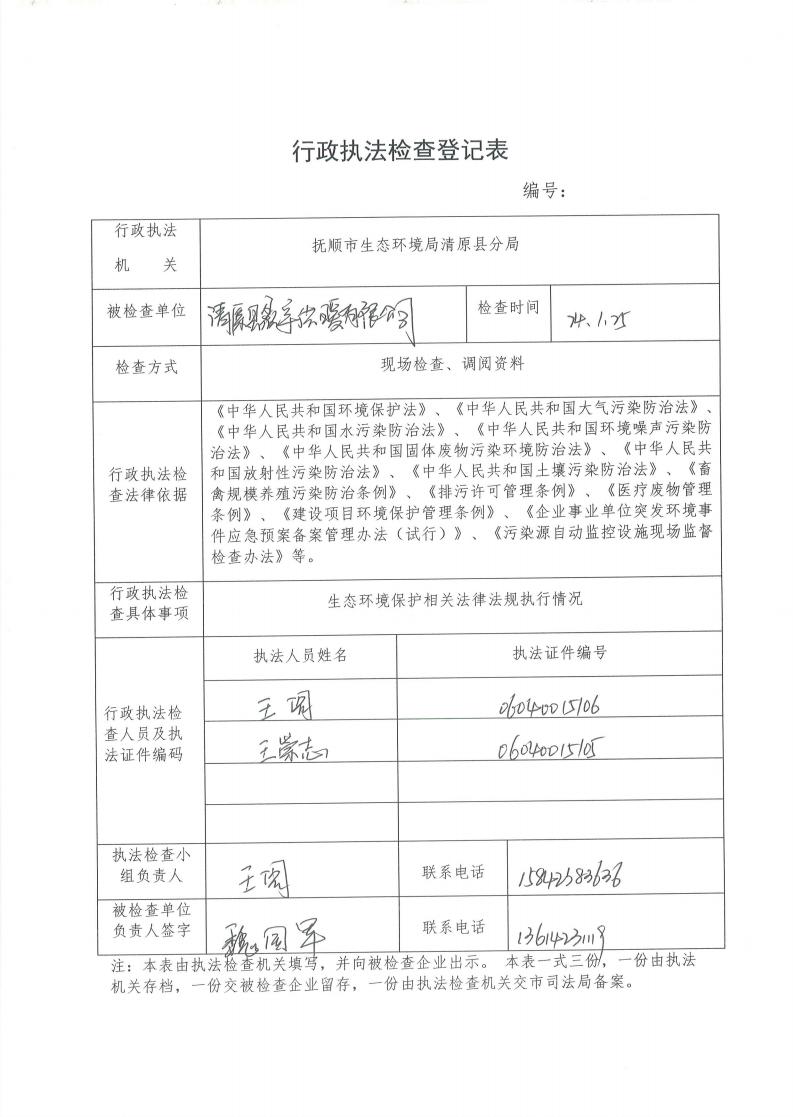 行政执法检查登记表
编号：
行政执法
机 关
抚顺市生态环境局清原县分局
被检查单位
清原县 供暖有限公司
检查时间
24.1.25
检查方式
现场检查、调阅资料
行政执法检
查法律依据
《中华人民共和国环境保护法》、《中华人民共和国大气污染防治法》、
《中华人民共和国水污染防治法》、《中华人民共和国环境噪声污染防
治法》、《中华人民共和国固体废物污染环境防治法》、《中华人民共
和国放射性污染防治法》、《中华人民共和国土壤污染防治法》、《畜
禽规模养殖污染防治条例》、《排污许可管理条例》、《医疗废物管理
条例》、《建设项目环境保护管理条例》、《企业事业单位突发环境事
件应急预案备案管理办法（试行）》、《污染源自动监控设施现场监督
检查办法》等。
行政执法检
查具体事项
生态环境保护相关法律法规执行情况
行政执法检
查人员及执
法证件编码
执法人员姓名
执法证件编号
王
06040015106
王崇志
06040015105
执法检查小
组负责人
王
联系电话
15842383636
被检查单位
负责人签字
魏国军
联系电话
13614231119
注：本表由执法检查机关填写，并向被检查企业出示。 本表一式三份，一份由执法
机关存档，一份交被检查企业留存，一份由执法检查机关交市司法局备案。